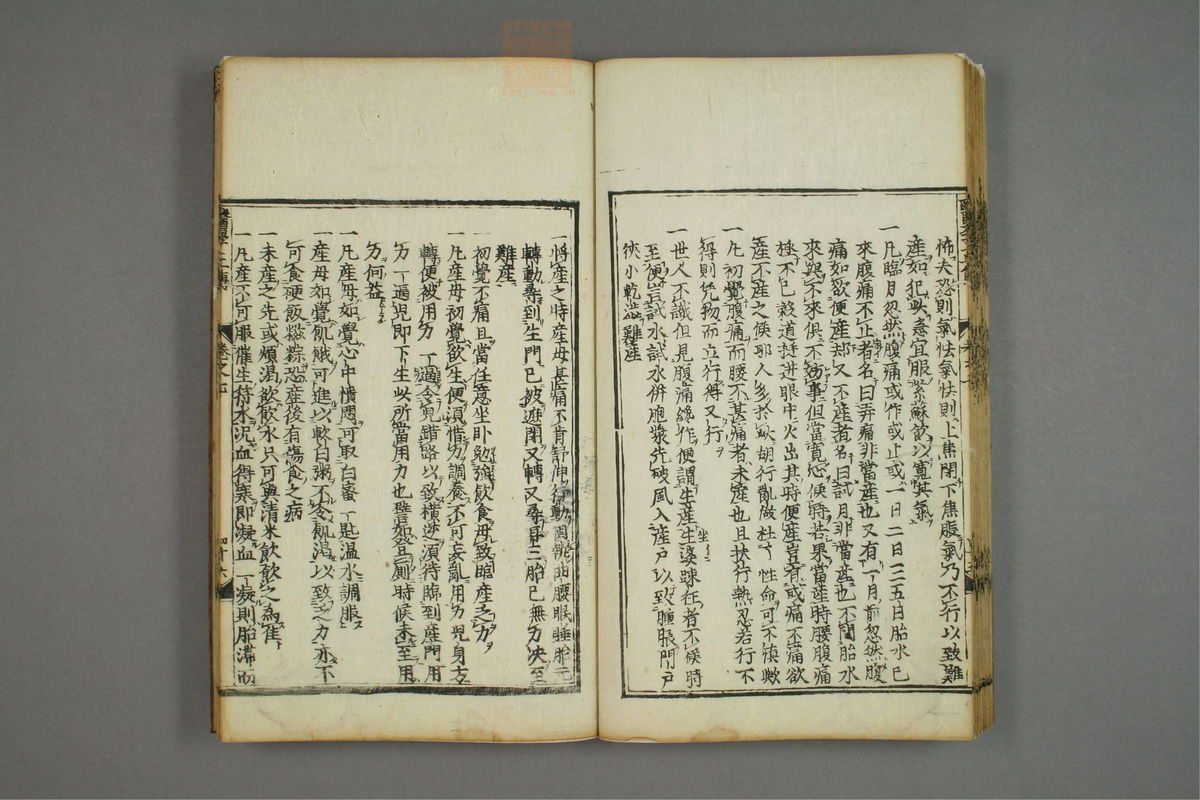 怖夫恐則氣怯氣怯則上焦閉下焦脹氣乃不行以致難
産如犯此意宜服紫蘇飲以寛其氣
一凡臨月忽然腹痛或作或止或一日二日三五日胎水已
來腹痛不止者名曰弄痛非當産也又有一月前忽然腹
痛如欲便産却又不産者名曰試月非當産也不問胎水
來與不來俱不妨事但當寛心候時若果當産時腰腹痛
極不已穀道挺進眼中火出其時便産豈有或痛不痛欲
産不産之候耶人多於此胡行亂做枉亡性命可不愼歟
一凡初覺腹痛而腰不甚痛者未産也且扶行熟忍若行不
得則凭物而立行得又行
一世人不識但見腹痛纔作便謂生産坐婆踈狂者不候時
至便豈試水試水併胞漿先破風入産戸以致腫脹門戸
狹小乾澁難産
一將産之時産母甚痛不肯舒伸行動因就曲腰眠睡胎元
轉動尋到生門已被遮閉又轉又尋再三胎已無力决至
難産
一初覺不痛且當任意坐卧勉強飲食毋致臨産乏力
一凡産母初覺欲生便須惜力調養不可妄亂用力兒身方
轉便被用力一逼令兒錯路以致横逆須待臨到産門用
力一逼兒即下生此所當用力也譬如登厠時候未至用
力何益
一凡産母如覺心中憒悶可取白蜜一匙温水調服
一産母如覺飢餓可進以軟白粥不令飢渇以致乏力亦不
可食硬飯糍粽恐産後有傷食之病
一未産之先或煩渇欲飲水只可與清米飲飲之爲佳
一凡産不可服催生符水况血得寒即凝血一凝則胎滞而